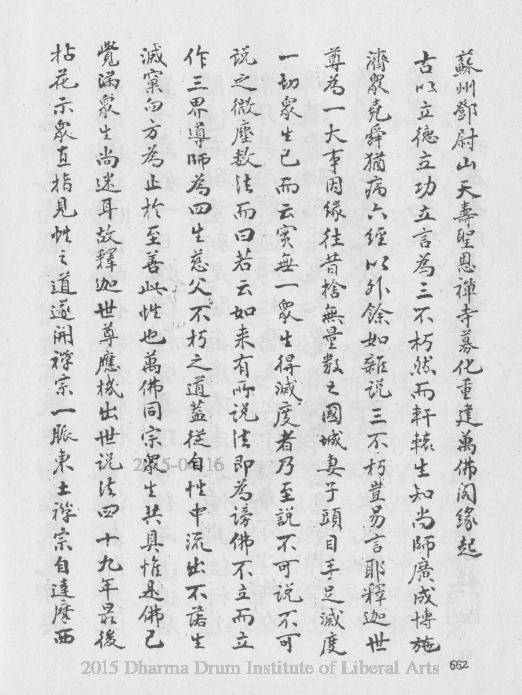 蘇州鄧尉山天壽聖恩禪寺募化重建萬佛閣緣起
古以立德立功立言為三不朽然而軒轅生知尚師廣成博施
濟眾堯舜猶病六經以外餘如雜說三不朽豈易言耶釋迦世
尊為一大事因緣往昔捨無量數之國城妻子頭目手足滅度
一切眾生已而云实無一眾生得滅度者乃至說不可說不可
說之微塵数法而曰若云如来有所說法即為謗佛不立而立
作三界導師為四生慈父不朽之道蓋從自性中流出不落生
滅窠臼方為止於至善此性也萬佛同宗眾生共具惟是佛已
覺滿眾生尚迷耳故釋迦世尊應機出世說法四十九年最後
拈花示眾直指見性之道遂開禪宗一脈東土禪宗自達摩西
2015-04-16
2015 Dharma Drum Institute of Liberal Arts
662